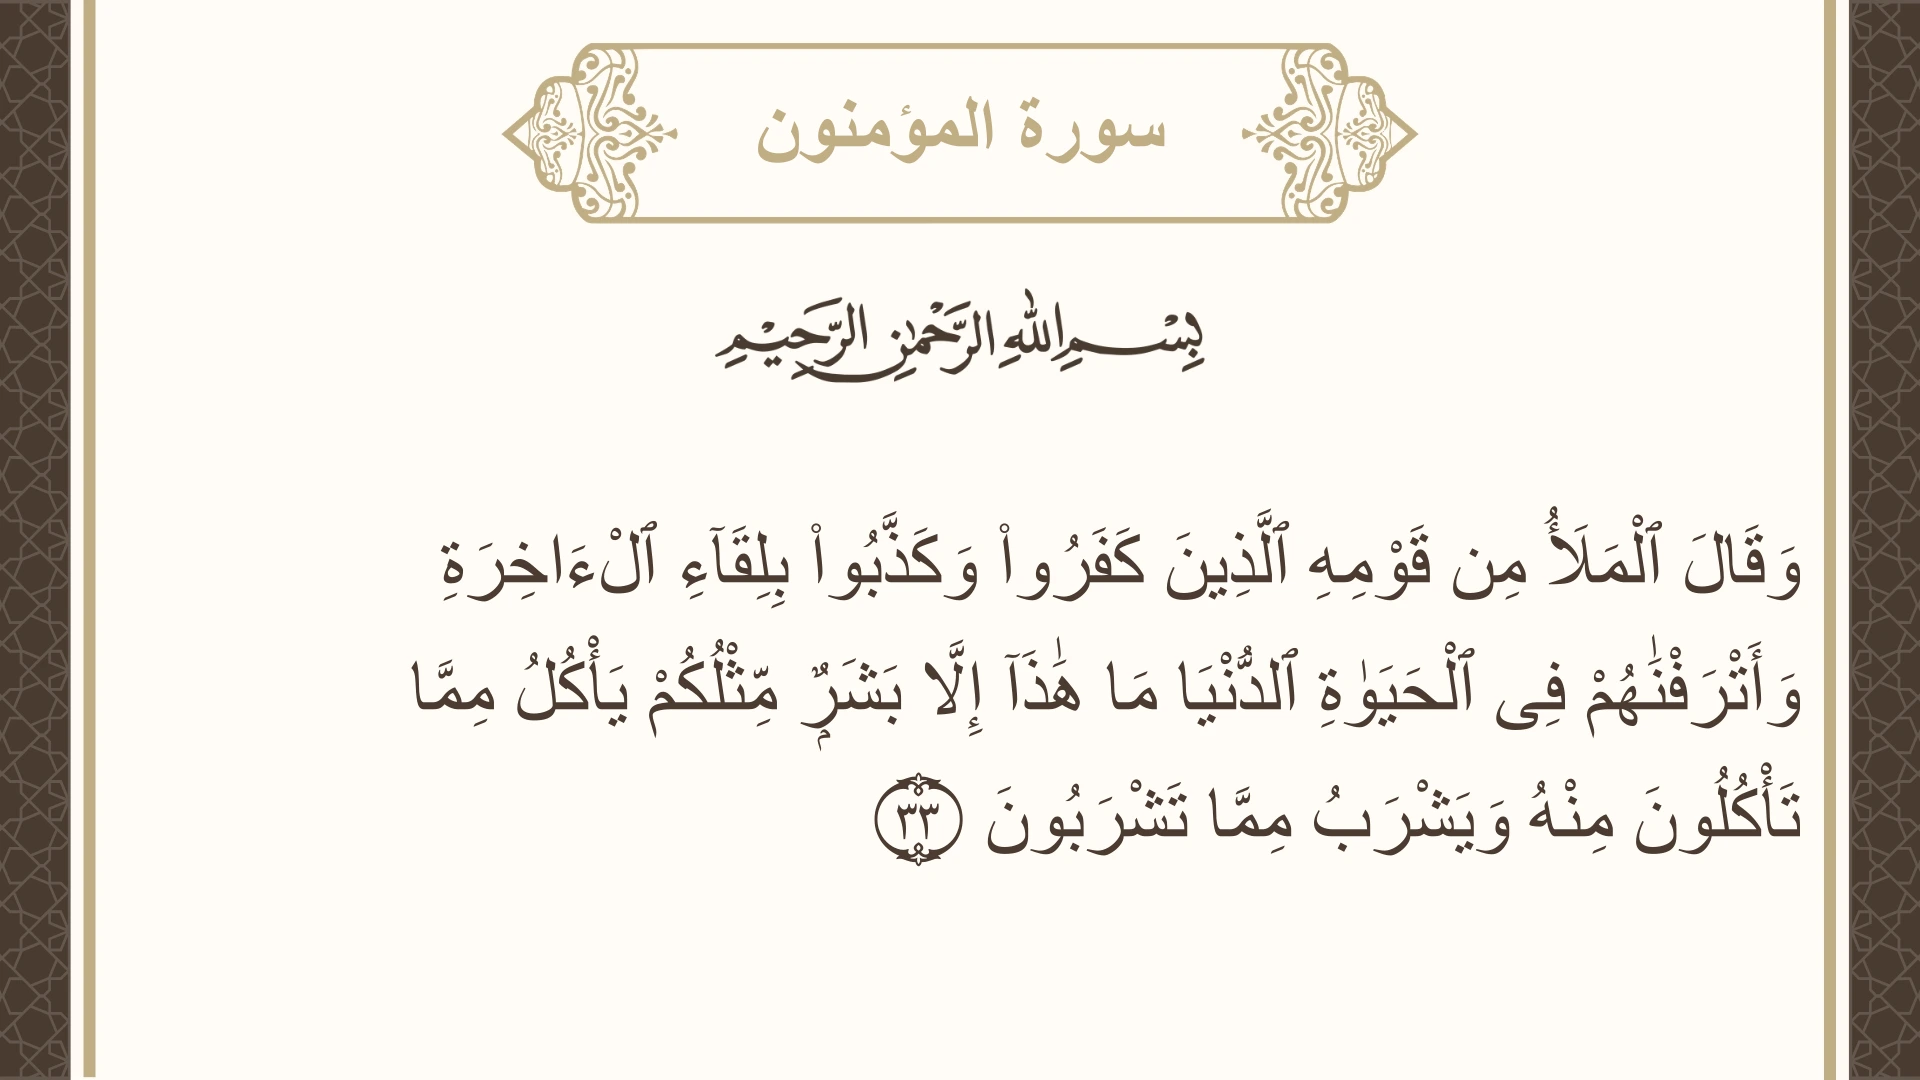 سورة المؤمنون
بِسْمِ اللهِ الرَّحْمٰنِ الرَّحِيْمِ
وَقَالَ ٱلْمَلَأُ مِن قَوْمِهِ ٱلَّذِينَ كَفَرُوا۟ وَكَذَّبُوا۟ بِلِقَآءِ ٱلْءَاخِرَةِ
وَأَتْرَفْنَـٰهُمْ فِى ٱلْحَيَوٰةِ ٱلدُّنْيَا مَا هَـٰذَآ إِلَّا بَشَرٌۭ مِّثْلُكُمْ يَأْكُلُ مِمَّا
تَأْكُلُونَ مِنْهُ وَيَشْرَبُ مِمَّا تَشْرَبُونَ ٣٣